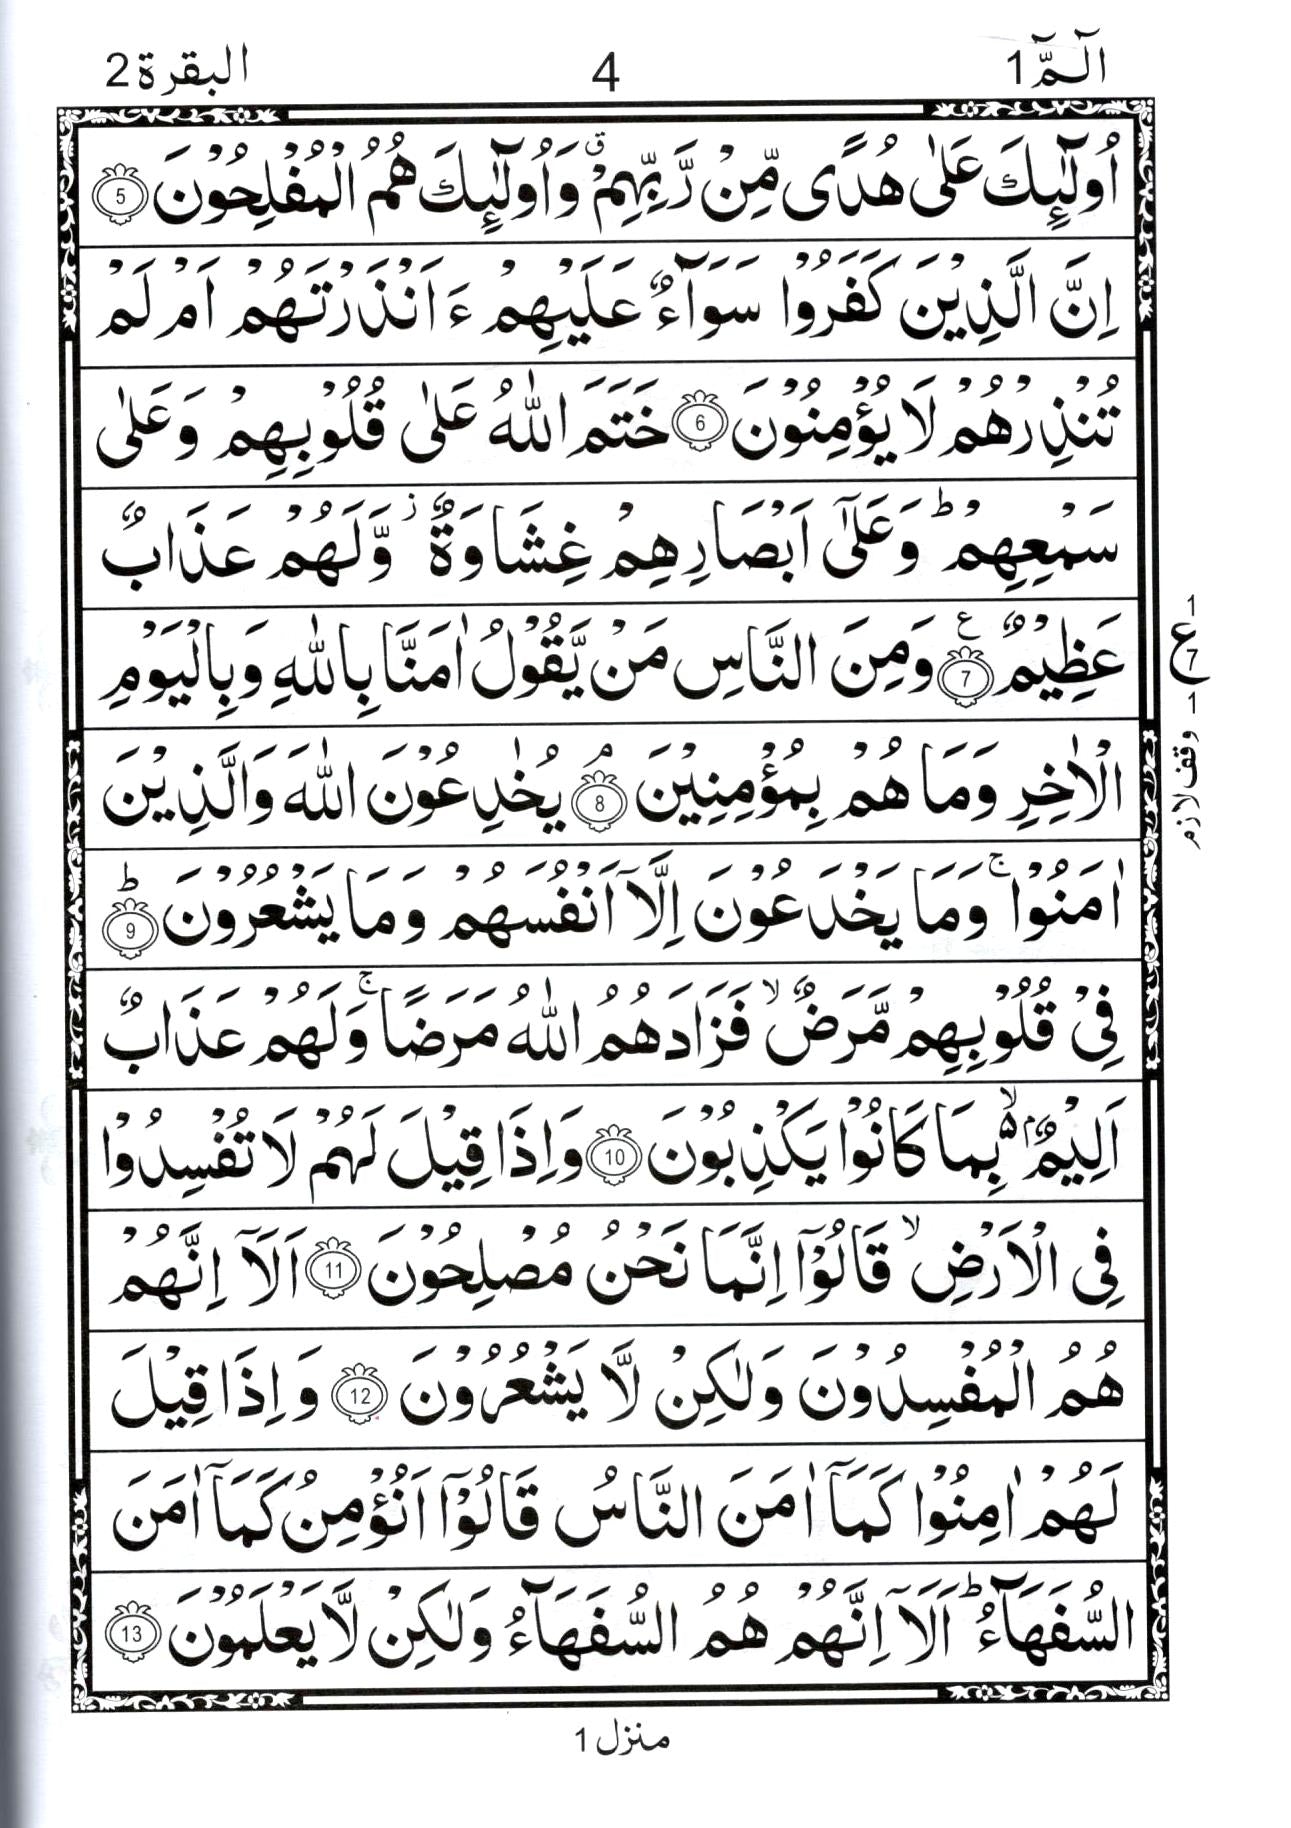 الٓـمّٓ 1
4
البقرة 2
اُولٰٓئِكَ عَلٰى هُدًى مِّنْ رَّبِّهِمْ ۗ وَاُولٰٓئِكَ هُمُ الْمُفْلِحُوْنَ 5
اِنَّ الَّذِيْنَ كَفَرُوْا سَوَآءٌ عَلَيْهِمْ ءَاَنْذَرْتَهُمْ اَمْ لَمْ
تُنْذِرْهُمْ لَا يُؤْمِنُوْنَ 6 خَتَمَ اللّٰهُ عَلٰى قُلُوْبِهِمْ وَعَلٰى
سَمْعِهِمْ ؕ وَعَلٰٓى اَبْصَارِهِمْ غِشَاوَةٌ ز وَّلَهُمْ عَذَابٌ
عَظِيْمٌ 7 ع وَمِنَ النَّاسِ مَنْ يَّقُوْلُ اٰمَنَّا بِاللّٰهِ وَبِالْيَوْمِ
الْاٰخِرِ وَمَا هُمْ بِمُؤْمِنِيْنَ 8 ۘ يُخٰدِعُوْنَ اللّٰهَ وَالَّذِيْنَ
اٰمَنُوْا ۚ وَمَا يَخْدَعُوْنَ اِلَّآ اَنْفُسَهُمْ وَمَا يَشْعُرُوْنَ 9 ؕ
فِىْ قُلُوْبِهِمْ مَّرَضٌ ۙ فَزَادَهُمُ اللّٰهُ مَرَضًا ۚ وَلَهُمْ عَذَابٌ
اَلِيْمٌۢ ۙ۬ بِمَا كَانُوْا يَكْذِبُوْنَ 10 وَاِذَا قِيْلَ لَهُمْ لَا تُفْسِدُوْا
فِى الْاَرْضِ ۙ قَالُوْٓا اِنَّمَا نَحْنُ مُصْلِحُوْنَ 11 اَلَآ اِنَّهُمْ
هُمُ الْمُفْسِدُوْنَ وَلٰكِنْ لَّا يَشْعُرُوْنَ 12 وَاِذَا قِيْلَ
لَهُمْ اٰمِنُوْا كَمَآ اٰمَنَ النَّاسُ قَالُوْٓا اَنُؤْمِنُ كَمَآ اٰمَنَ
السُّفَهَآءُ ؕ اَلَآ اِنَّهُمْ هُمُ السُّفَهَآءُ وَلٰكِنْ لَّا يَعْلَمُوْنَ 13
1
ع 7
1
وقف لازم
منزل 1